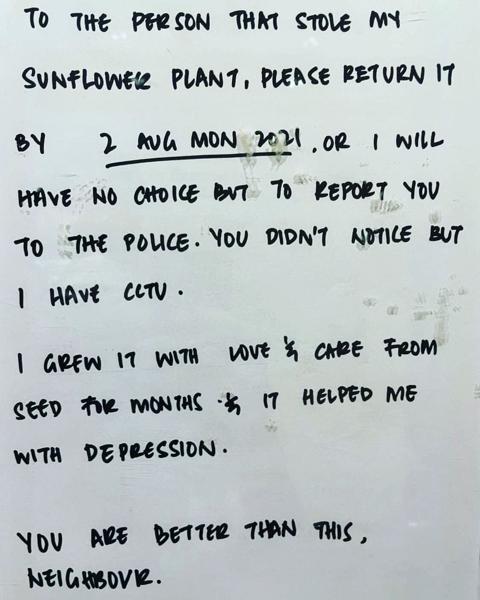 TO THE PERSON THAT STOLE MY
SUNFLOWER PLANT, PLEASE RETURN IT
BY 2 AUG MON 2021, OR I WILL
HAVE NO CHOICE BUT TO REPORT YOU
TO THE POLICE. YOU DIDN'T NOTICE BUT
I HAVE CCTV.
I GREW IT WITH LOVE & CARE FROM
SEED FOR MONTHS & IT HELPED ME
WITH DEPRESSION.
YOU ARE BETTER THAN THIS,
NEIGHBOUR.